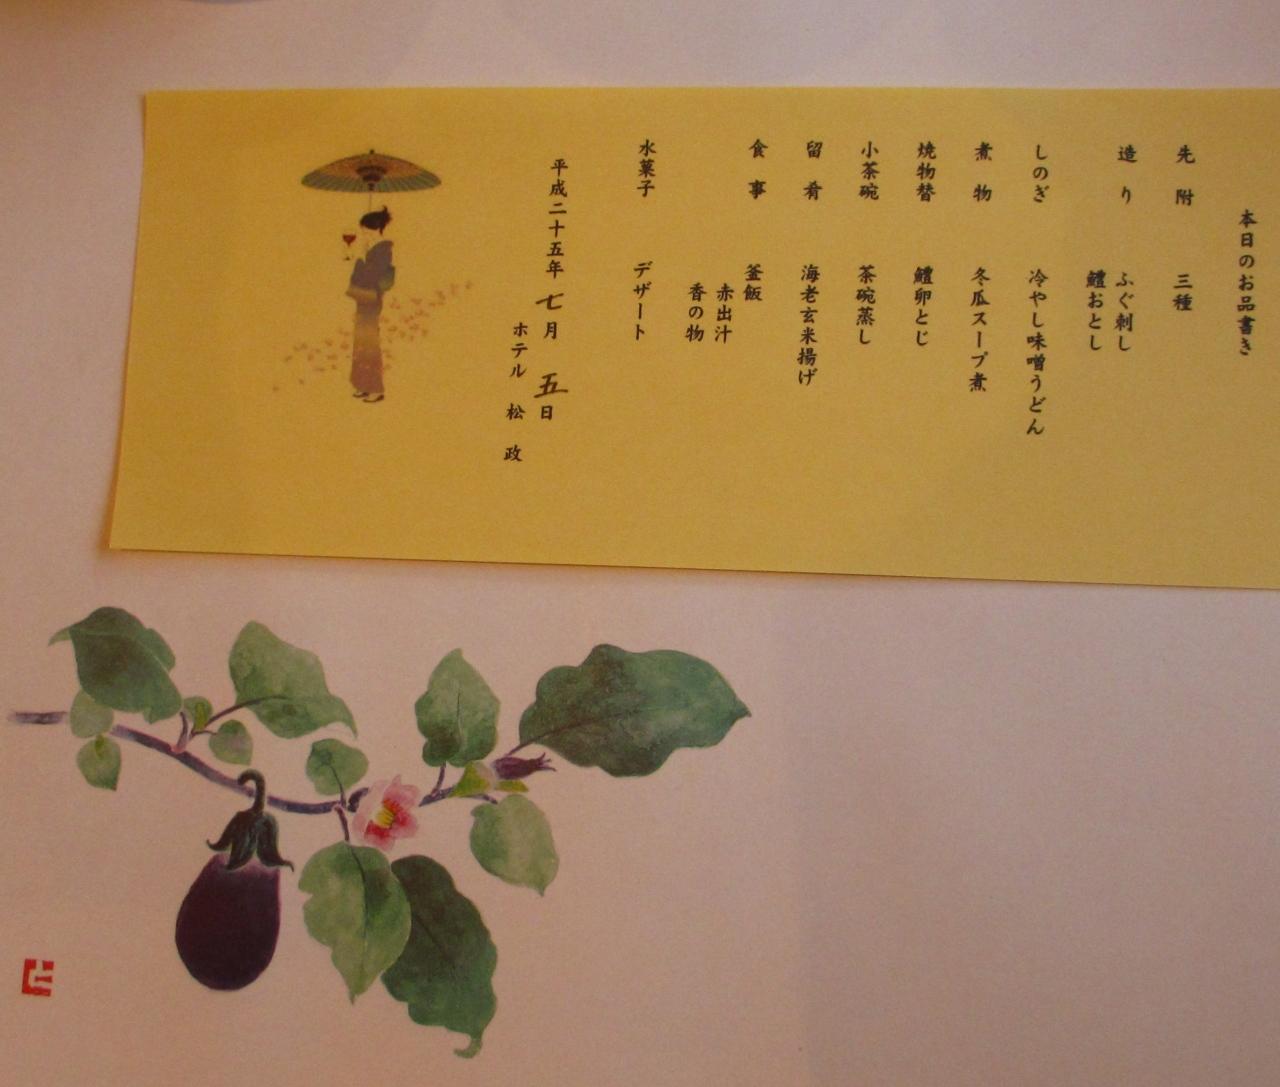 本日のお品書き
先附 三種
造り ふぐ刺し
鱧おとし
しのぎ 冷やし味噌うどん
煮物 冬瓜スープ煮
焼物替 鱧卵とじ
小茶碗 茶碗蒸し
留肴 海老玄米揚げ
食事 釜飯
赤出汁
香の物
水菓子 デザート
平成二十五年七月五日
ホテル松政